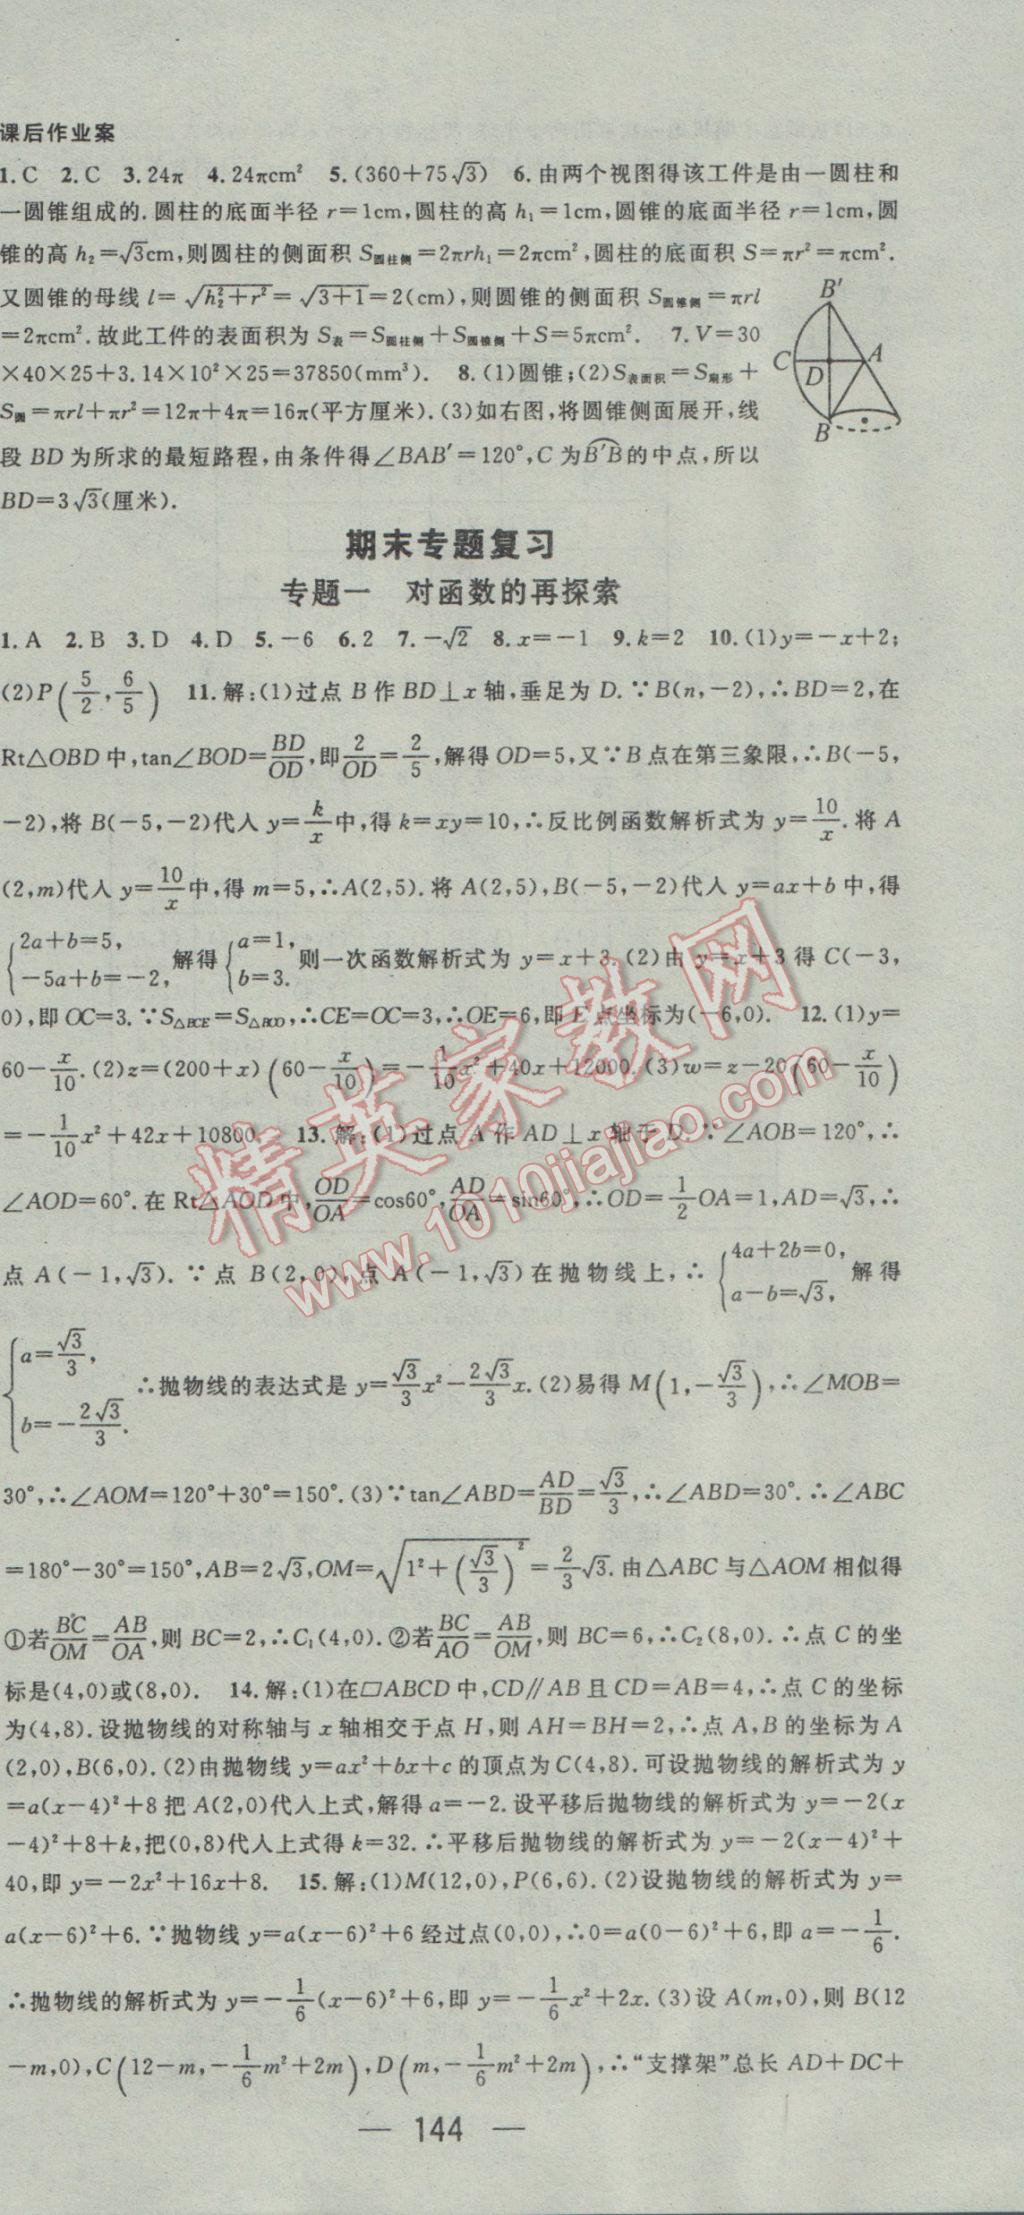 课后作业案
1.C 2.C 3.24π 4.24πcm² 5.(360+75√3) 6.由两个视图得该工件是由一圆柱和
一圆锥组成的.圆柱的底面半径 r=1cm,圆柱的高 h₁=1cm,圆锥的底面半径 r=1cm,圆
锥的高 h₂=√3cm,则圆柱的侧面积 S圆柱侧=2πrh₁=2πcm²,圆柱的底面积 S=πr²=πcm².
又圆锥的母线 l=√(h₂²+r²)=√(3+1)=2(cm),则圆锥的侧面积 S圆锥侧=πrl
=2πcm².故此工件的表面积为 S表=S圆柱侧+S圆锥侧+S=5πcm². 7.V=30
×40×25+3.14×10²×25=37850(mm³). 8.(1)圆锥;(2)S表面积=S扇形+
S圆=πrl+πr²=12π+4π=16π(平方厘米).(3)如右图,将圆锥侧面展开,线
段 BD 为所求的最短路程,由条件得∠BAB′=120°,C 为B′B的中点,所以
BD=3√3(厘米).
B′
C
D
A
B
期末专题复习
专题一 对函数的再探索
1.A 2.B 3.D 4.D 5.-6 6.2 7.-√2 8.x=-1 9.k=2 10.(1)y=-x+2;
(2)P(5/2,6/5) 11.解:(1)过点 B 作 BD⊥x 轴,垂足为 D.∵B(n,-2),∴BD=2,在
Rt△OBD 中,tan∠BOD=BD/OD,即2/OD=2/5,解得 OD=5,又∵B点在第三象限,∴B(-5,
-2),将 B(-5,-2)代人 y=k/x中,得 k=xy=10,∴反比例函数解析式为 y=10/x.将 A
(2,m)代人 y=10/x中,得 m=5,∴A(2,5).将 A(2,5),B(-5,-2)代人 y=ax+b 中,得
{2a+b=5, -5a+b=-2, 解得{a=1, b=3. 则一次函数解析式为 y=x+3.(2)由 y=x+3 得 C(-3,
0),即 OC=3.∵S△BCE=S△BCO,∴CE=OC=3,∴OE=6,即 E 点坐标为(-6,0). 12.(1)y=
60-x/10.(2)z=(200+x)(60-x/10)=-1/10x²+40x+12000.(3)w=z-20(60-x/10)
=-1/10x²+42x+10800. 13.解:(1)过点 A 作 AD⊥x 轴于 D.∵∠AOB=120°,∴
∠AOD=60°.在 Rt△AOD 中,OD/OA=cos60°,AD/OA=sin60°,∴OD=1/2OA=1,AD=√3,∴
点 A(-1,√3).∵点 B(2,0),点 A(-1,√3)在抛物线上,∴{4a+2b=0, a-b=√3, 解得
{a=√3/3, b=-2√3/3. ∴抛物线的表达式是 y=√3/3x²-2√3/3x.(2)易得 M(1,-√3/3),∴∠MOB=
30°,∴∠AOM=120°+30°=150°.(3)∵tan∠ABD=AD/BD=√3/3,∴∠ABD=30°.∴∠ABC
=180°-30°=150°,AB=2√3,OM=√(1²+(√3/3)²)=2/3√3.由△ABC 与△AOM 相似得
①若BC/OM=AB/OA,则 BC=2,∴C₁(4,0).②若BC/AO=AB/OM,则 BC=6,∴C₂(8,0).∴点 C 的坐
标是(4,0)或(8,0). 14.解:(1)在▱ABCD 中,CD∥AB 且 CD=AB=4,∴点 C 的坐标
为(4,8).设抛物线的对称轴与 x 轴相交于点 H,则 AH=BH=2,∴点 A,B 的坐标为 A
(2,0),B(6,0).(2)由抛物线 y=ax²+bx+c 的顶点为 C(4,8).可设抛物线的解析式为 y
=a(x-4)²+8 把 A(2,0)代人上式,解得 a=-2.设平移后抛物线的解析式为 y=-2(x
-4)²+8+k,把(0,8)代人上式得 k=32.∴平移后抛物线的解析式为 y=-2(x-4)²+
40,即 y=-2x²+16x+8. 15.解:(1)M(12,0),P(6,6).(2)设抛物线的解析式为 y=
a(x-6)²+6.∵抛物线 y=a(x-6)²+6 经过点(0,0),∴0=a(0-6)²+6,即 a=-1/6.
∴抛物线的解析式为 y=-1/6(x-6)²+6,即 y=-1/6x²+2x.(3)设 A(m,0),则 B(12
-m,0),C(12-m,-1/6m²+2m),D(m,-1/6m²+2m),∴“支撑架”总长 AD+DC+
— 144 —
精英家教网
www.1010jiajiao.com